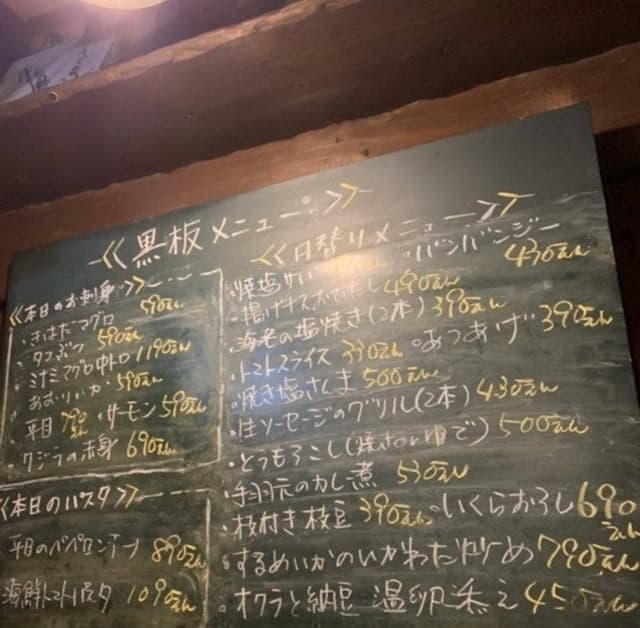 ≪黒板メニュー≫
≪日替りメニュー≫
≪本日のお刺身≫
・きはだマグロ 590えん
・タコぶつ 590えん
・ミナミマグロ中トロ 1190えん
・あおりいか 590えん
・平目 790えん ・サーモン 590えん
・クジラの赤身 690えん
≪本日のパスタ≫
平目のペペロンチーノ 890えん
海鮮トマトパスタ 1090えん
・バンバンジー 430えん
・揚げナスおひたし 490えん
・海老の塩焼き(2本) 390えん
・トマトスライス 390えん ・あつあげ 390えん
・焼き塩さんま 500えん
・生ソーセージのグリル(2本) 430えん
・とうもろこし(焼きorゆで) 500えん
・手羽元のカレー煮 530えん
・枝付き枝豆 390えん ・いくらおろし 690えん
・するめいかのいかわた炒め 790えん
・オクラと納豆 温卵添え 450えん